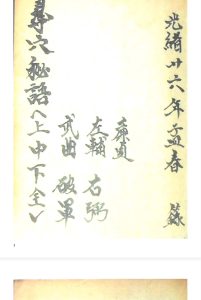 光緒廿六年孟春 錄
廉貞
左輔 右弼
武曲 破軍
尋穴秘語〈上中下全〉